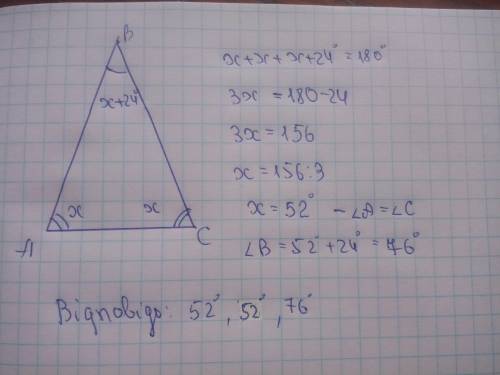 B
x+24°
x x
A C
x+x+x+24°=180°
3x = 180-24
3x = 156
x = 156:3
x = 52° - ∠A=∠C
∠B = 52°+24° = 76°
Відповідь: 52°, 52°, 76°